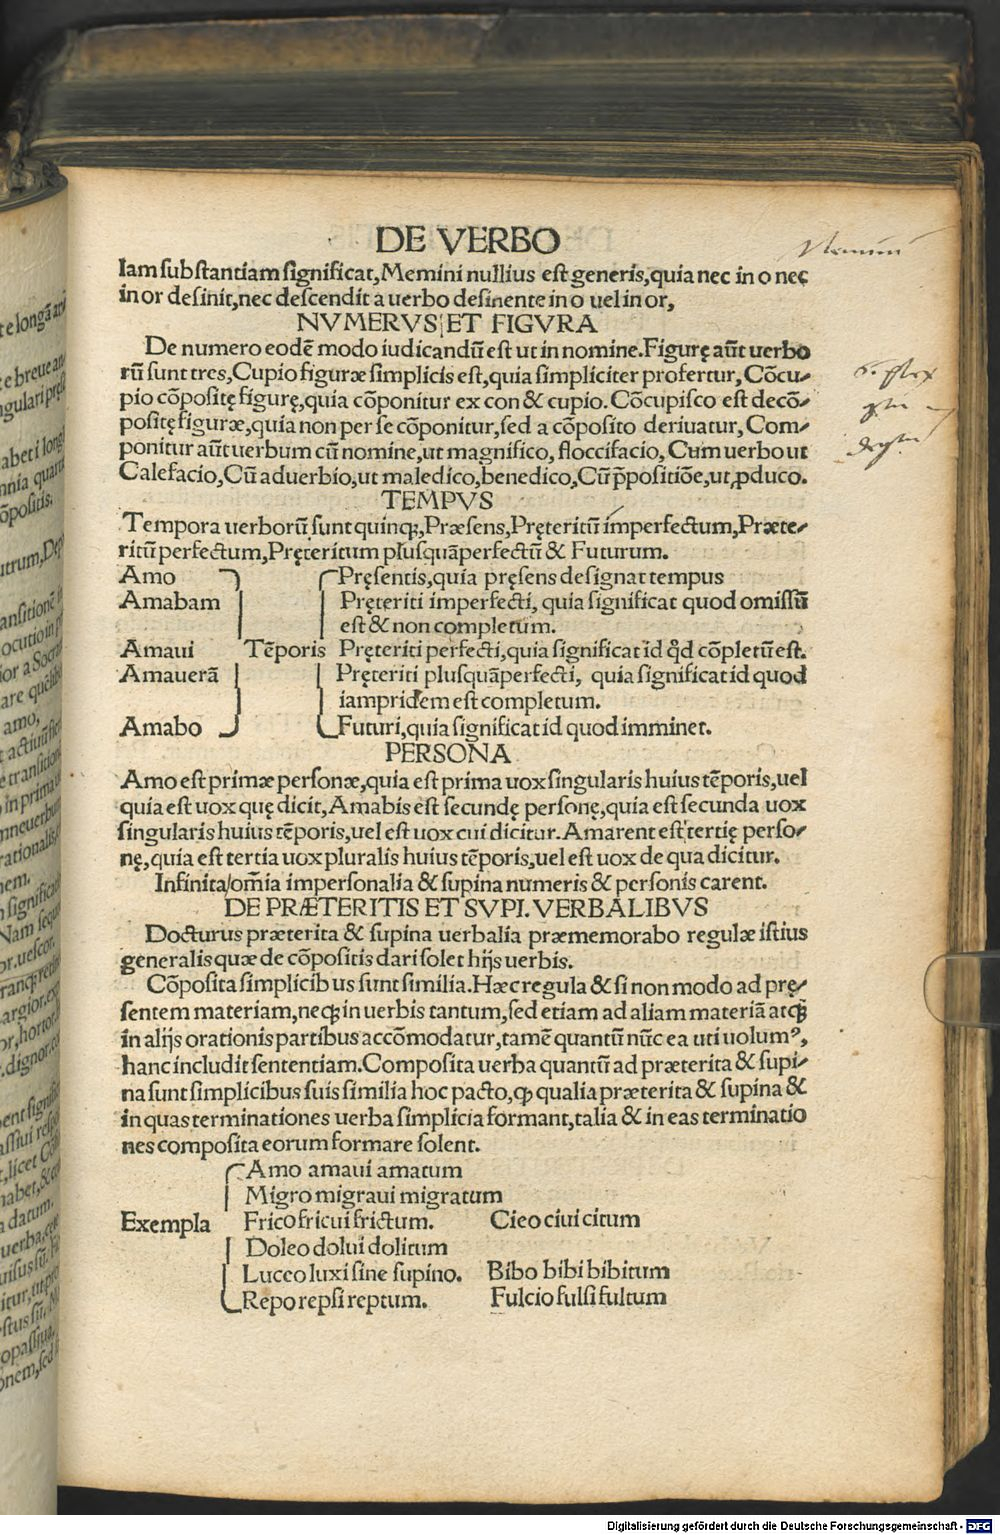 DE VERBO
lam substantiam significat, Memini nullius est generis, quia nec in o nec
in or desinit, nec descendit a uerbo desinente in o uel in or,
NVMERVS ET FIGVRA
De numero eodē modo iudicandū est ut in nomine. Figurę aūt uerbo
rū sunt tres, Cupio figuræ simplicis est, quia simpliciter profertur, Cōcu⸗
pio cōpositę figurę, quia cōponitur ex con & cupio. Cōcupisco est decō⸗
positę figuræ, quia non per se cōponitur, sed a cōposito deriuatur, Com⸗
ponitur aūt uerbum cū nomine, ut magnifico, floccifacio, Cum uerbo ut
Calefacio, Cū aduerbio, ut maledico, benedico, Cū p̄positiōe, ut, ꝓduco.
TEMPVS
Tempora uerborū sunt quinqꝫ, Præsens, Pręteritū imperfectum, Præte⸗
ritū perfectum, Pręteritum plusquāperfectū & Futurum.
Amo Pręsentis, quia pręsens designat tempus
Amabam Pręteriti imperfecti, quia significat quod omissū
est & non completum.
Amaui Tēporis Pręteriti perfecti, quia significat id qd̄ cōpletū est.
Amauerā Pręteriti plusquāperfecti, quia significat id quod
iampridem est completum.
Amabo Futuri, quia significat id quod imminet.
PERSONA
Amo est primæ personæ, quia est prima uox singularis huius tēporis, uel
quia est uox quę dicit, Amabis est secundę personę, quia est secunda uox
singularis huius tēporis, uel est uox cui dicitur. Amarent est tertię perso⸗
nę, quia est tertia uox pluralis huius tēporis, uel est uox de qua dicitur.
Infinita/om̄ia impersonalia & supina numeris & personis carent.
DE PRÆTERITIS ET SVPI. VERBALIBVS
Docturus præterita & supina uerbalia præmemorabo regulæ istius
generalis quæ de cōpositis dari solet hijs uerbis.
Cōposita simplicib us sunt similia. Hæc regula & si non modo ad prę⸗
sentem materiam, neqꝫ in uerbis tantum, sed etiam ad aliam materiā atqꝫ
in alijs orationis partibus accōmodatur, tamē quantū nūc ea uti uolumꝰ,
hanc includit sententiam. Composita uerba quantū ad præterita & supi⸗
na sunt simplicibus suis similia hoc pacto, ꝙ qualia præterita & supina &
in quas terminationes uerba simplicia formant, talia & in eas terminatio
nes composita eorum formare solent.
Amo amaui amatum
Migro migraui migratum
Exempla Frico fricui frictum. Cieo ciui citum
Doleo dolui dolitum
Lucco luxi sine supino. Bibo bibi bibitum
Repo repsi reptum. Fulcio fulsi fultum
Digitalisierung gefördert durch die Deutsche Forschungsgemeinschaft - DFG